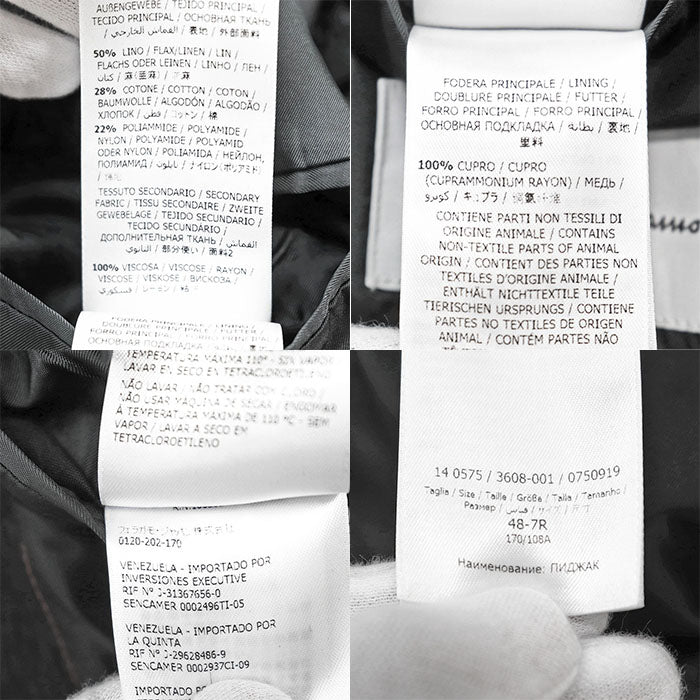 AUßENGEWEBE / TEJIDO PRINCIPAL /
TECIDO PRINCIPAL / ОСНОВНАЯ ТКАНЬ
/ القماش الخارجي / 表地 / 外部面料
50% LINO / FLAX/LINEN / LIN /
FLACHS ODER LEINEN / LINHO / ЛЕН /
麻(亜麻) / كتان
28% COTONE / COTTON / COTON /
BAUMWOLLE / ALGODÓN / ALGODÃO /
ХЛОПОК / قطن / コットン / 棉
22% POLIAMMIDE / POLYAMIDE /
NYLON / POLYAMIDE / POLYAMID
ODER NYLON / POLIAMIDA / НЕЙЛОН,
ПОЛИАМИД / نايلون / ナイロン(ポリアミド)
TESSUTO SECONDARIO / SECONDARY
FABRIC / TISSU SECONDAIRE / ZWEITE
GEWEBELAGE / TEJIDO SECUNDARIO /
TECIDO SECUNDÁRIO /
ДОПОЛНИТЕЛЬНАЯ ТКАНЬ / القماش
الثانوي / 部分使い / 面料2
100% VISCOSA / VISCOSE / RAYON /
VISCOSE / VISKOSE / ВИСКОЗА /
فسكوزي / レーヨン / 粘
FODERA PRINCIPALE / LINING /
DOUBLURE PRINCIPALE / FUTTER /
FORRO PRINCIPAL / FORRO PRINCIPAL /
ОСНОВНАЯ ПОДКЛАДКА
FODERA PRINCIPALE / LINING /
DOUBLURE PRINCIPALE / FUTTER /
FORRO PRINCIPAL / FORRO PRINCIPAL /
ОСНОВНАЯ ПОДКЛАДКА / بطانة / 裏地 /
里料
100% CUPRO / CUPRO
(CUPRAMMONIUM RAYON) / МЕДЬ /
كوبرو / キュプラ /
CONTIENE PARTI NON TESSILI DI
ORIGINE ANIMALE / CONTAINS
NON-TEXTILE PARTS OF ANIMAL
ORIGIN / CONTIENT DES PARTIES NON
TEXTILES D'ORIGINE ANIMALE /
ENTHÄLT NICHTTEXTILE TEILE
TIERISCHEN URSPRUNGS / CONTIENE
PARTES NO TEXTILES DE ORIGEN
ANIMAL / CONTÉM PARTES NÃO
TEMPERATURA MÁXIMA 110° - SIN VAPOR
LAVAR EN SECO EN TETRACLOROETILENO
NÃO LAVAR / NÃO TRATAR COM CLORO /
NÃO USAR MÁQUINA DE SECAR / ENGOMAR
À TEMPERATURA MÁXIMA DE 110 °C - SEM
VAPOR / LAVAR A SECO EM
TETRACLOROETILENO
フェラガモ・ジャパン株式会社
0120-202-170
VENEZUELA - IMPORTADO POR
INVERSIONES EXECUTIVE
RIF N° J-31367656-0
SENCAMER 0002496TI-05
VENEZUELA - IMPORTADO POR
LA QUINTA
RIF N° J-29628486-9
SENCAMER 0002937CI-09
14 0575 / 3608-001 / 0750919
Taglia / Size / Taille / Größe / Talla / Tamanho /
Размер / قياس / サイズ / 尺寸
48-7R
170/108A
Наименование: ПИДЖАК